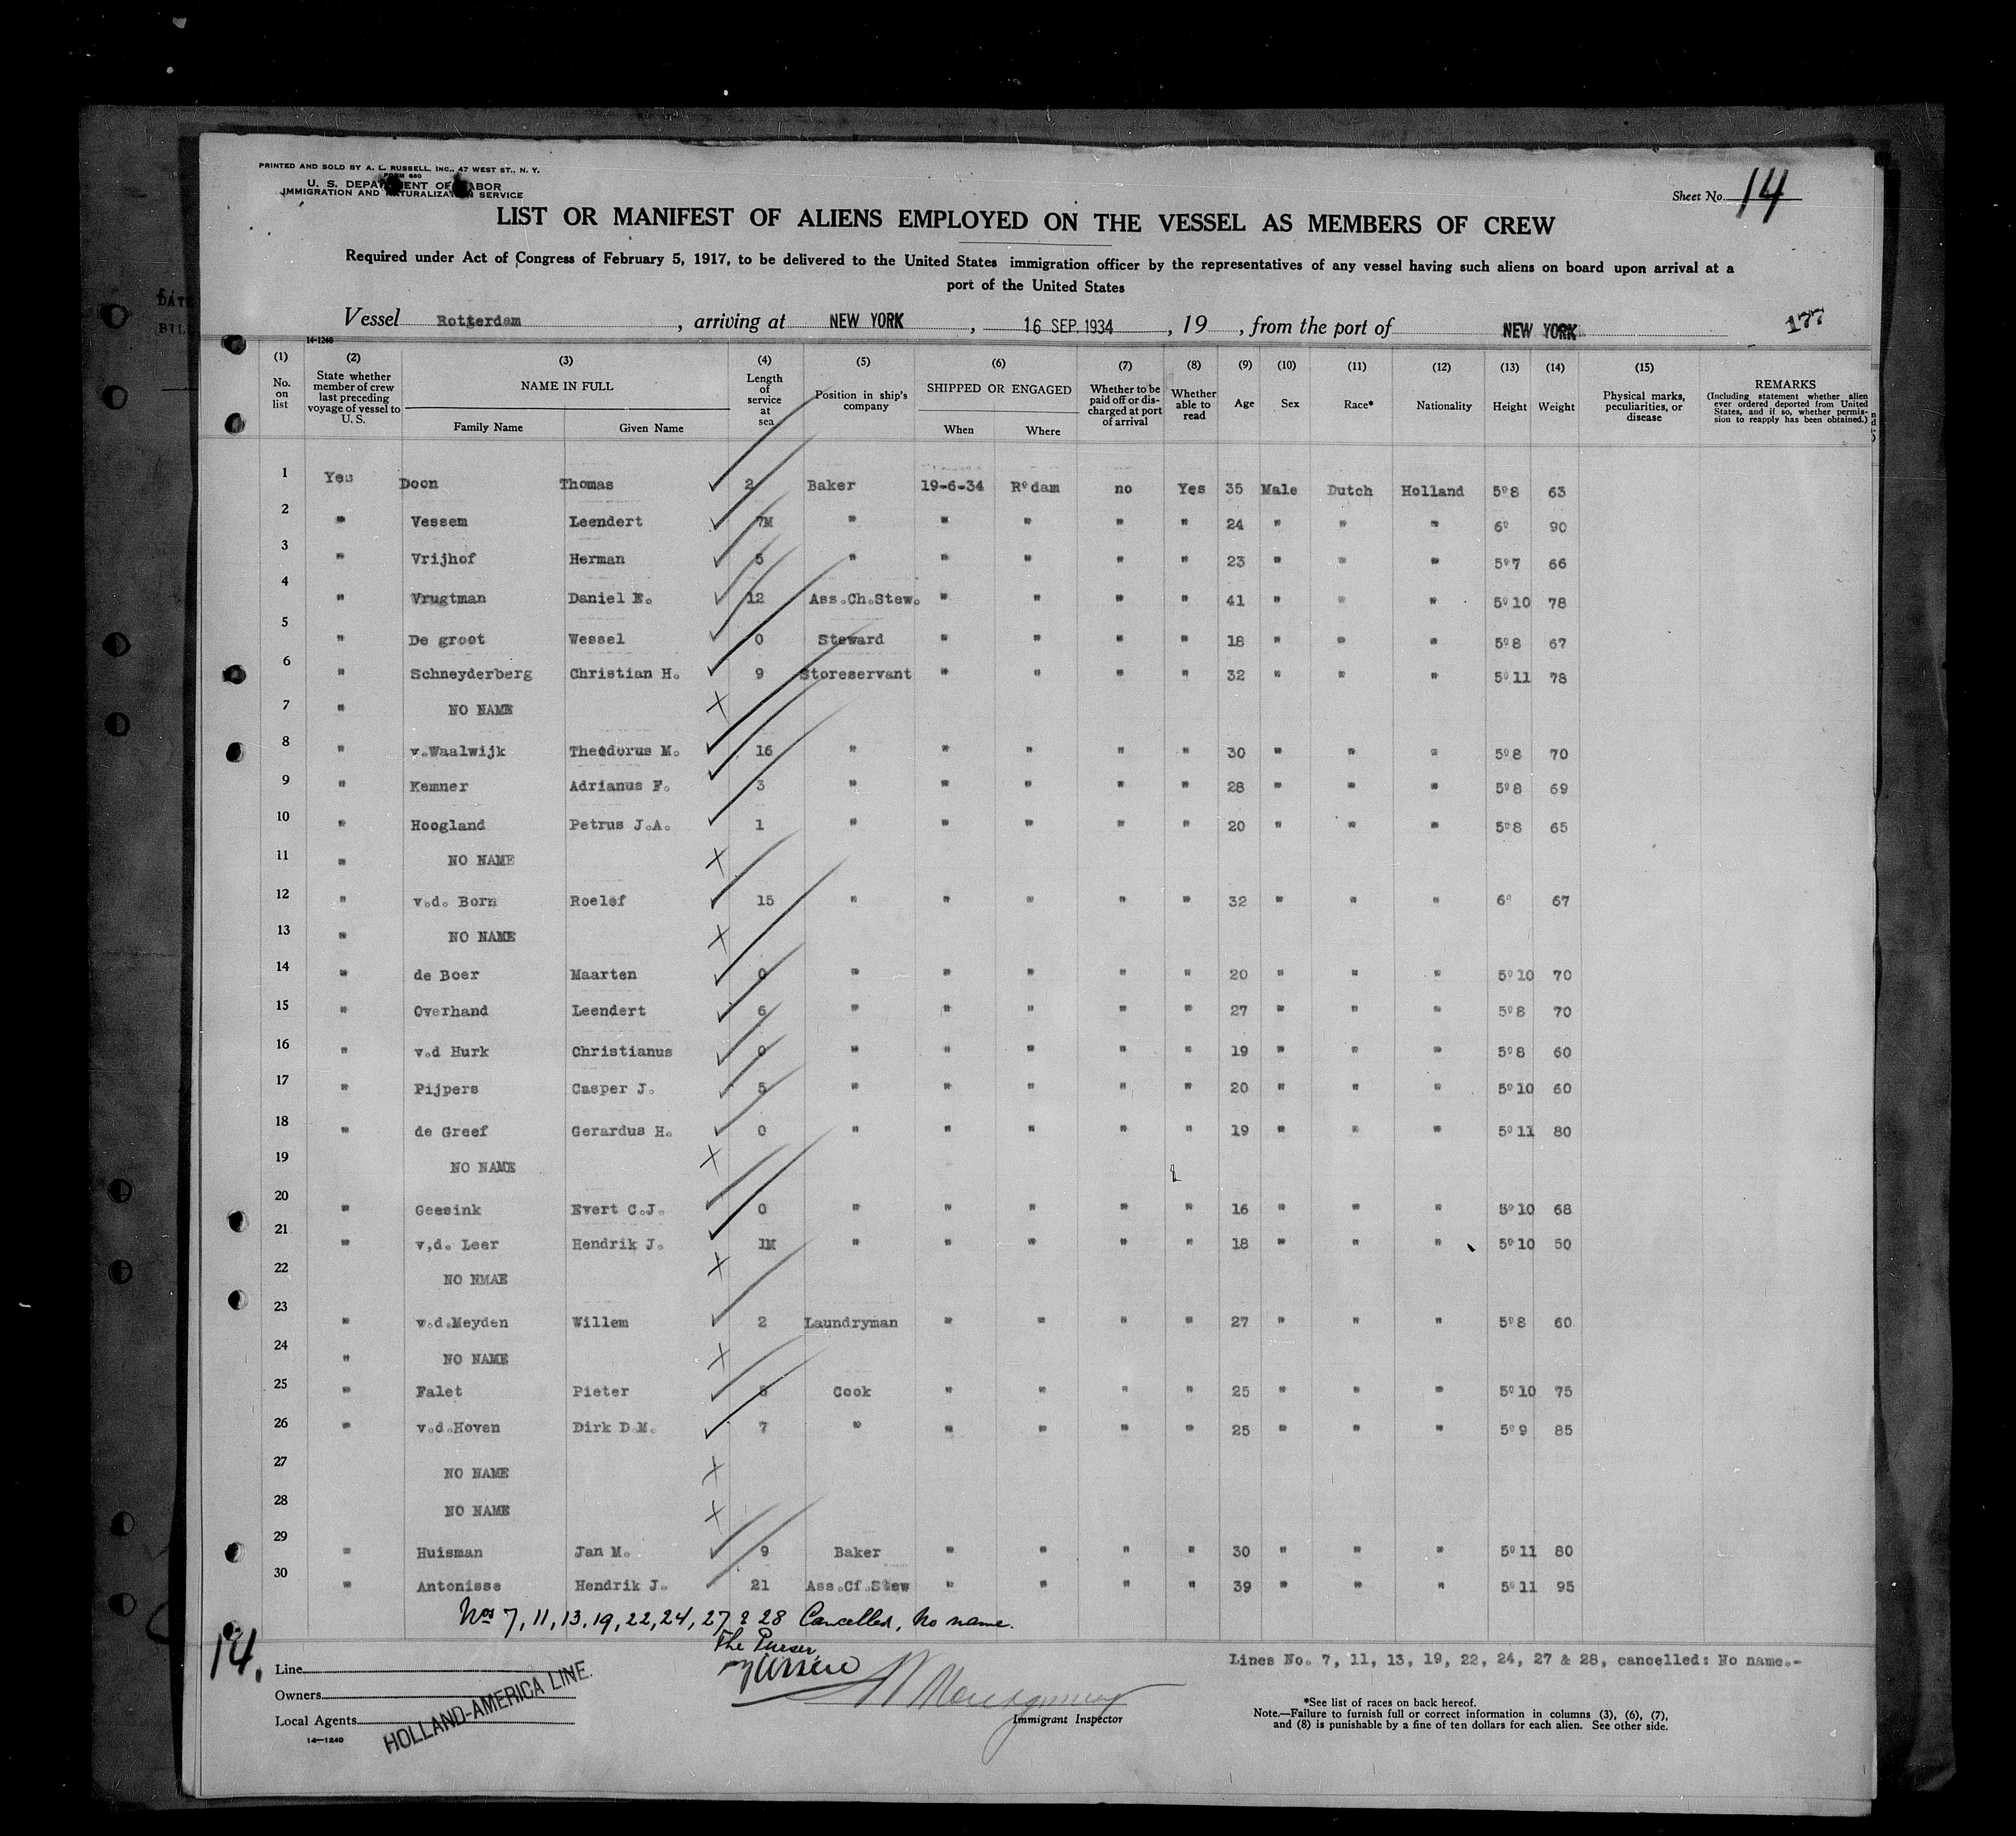 PRINTED AND SOLD BY A. L. RUSSELL, INC., 47 WEST ST., N. Y.
FORM 680
U. S. DEPARTMENT OF LABOR
IMMIGRATION AND NATURALIZATION SERVICE
Sheet No. 14
LIST OR MANIFEST OF ALIENS EMPLOYED ON THE VESSEL AS MEMBERS OF CREW
Required under Act of Congress of February 5, 1917, to be delivered to the United States immigration officer by the representatives of any vessel having such aliens on board upon arrival at a
port of the United States
Vessel Rotterdam, arriving at NEW YORK, 16 SEP. 1934, 19 , from the port of NEW YORK 177
14-1240
(1) (2) (3) (4) (5) (6) (7) (8) (9) (10) (11) (12) (13) (14) (15)
No. on list
State whether member of crew last preceding voyage of vessel to U. S.
NAME IN FULL
Family Name Given Name
Length of service at sea
Position in ship's company
SHIPPED OR ENGAGED
When Where
Whether to be paid off or discharged at port of arrival
Whether able to read
Age Sex Race* Nationality Height Weight
Physical marks, peculiarities, or disease
REMARKS
(Including statement whether alien ever ordered deported from United States, and if so, whether permission to reapply has been obtained.)
1 Yes Doon Thomas 2 Baker 19-6-34 Rºdam no Yes 35 Male Dutch Holland 5º8 63
2 " Vessem Leendert 7M " " " " " 24 " " " 6º 90
3 " Vrijhof Herman 5 " " " " " 23 " " " 5º7 66
4 " Vrugtman Daniel E. 12 Ass.Ch.Stew. " " " " 41 " " " 5º10 78
5 " De groot Wessel 0 Steward " " " " 18 " " " 5º8 67
6 " Schneyderberg Christian H. 9 Storeservant " " " " 32 " " " 5º11 78
7 " NO NAME
8 " v.Waalwijk Theodorus M. 16 " " " " " 30 " " " 5º8 70
9 " Kemner Adrianus F. 3 " " " " " 28 " " " 5º8 69
10 " Hoogland Petrus J.A. 1 " " " " " 20 " " " 5º8 65
11 " NO NAME
12 " v.d. Born Roelof 15 " " " " " 32 " " " 6º 67
13 " NO NAME
14 " de Boer Maarten 0 " " " " " 20 " " " 5º10 70
15 " Overhand Leendert 6 " " " " " 27 " " " 5º8 70
16 " v.d Hurk Christianus 0 " " " " " 19 " " " 5º8 60
17 " Pijpers Casper J. 5 " " " " " 20 " " " 5º10 60
18 " de Greef Gerardus H. 0 " " " " " 19 " " " 5º11 80
19 NO NAME
20 " Geesink Evert C.J. 0 " " " " " 16 " " " 5º10 68
21 " v,d. Leer Hendrik J. 1M " " " " " 18 " " " 5º10 50
22 NO NMAE
23 " v.d.Meyden Willem 2 Laundryman " " " " 27 " " " 5º8 60
24 " NO NAME
25 " Falet Pieter 5 Cook " " " " 25 " " " 5º10 75
26 " v.d.Hoven Dirk D.M. 7 " " " " " 25 " " " 5º9 85
27 NO NAME
28 NO NAME
29 " Huisman Jan M. 9 Baker " " " " 30 " " " 5º11 80
30 " Antonisse Hendrik J. 21 Ass.Cf.Stew " " " " 39 " " " 5º11 95
Nos 7, 11, 13, 19, 22, 24, 27 & 28 Cancelled, No name.
The Purser,
14.
Lines No. 7, 11, 13, 19, 22, 24, 27 & 28, cancelled: No name.-
Line
Owners
Local Agents
HOLLAND-AMERICA LINE.
14-1240
Montgomery
Immigrant Inspector
*See list of races on back hereof.
Note.—Failure to furnish full or correct information in columns (3), (6), (7),
and (8) is punishable by a fine of ten dollars for each alien. See other side.